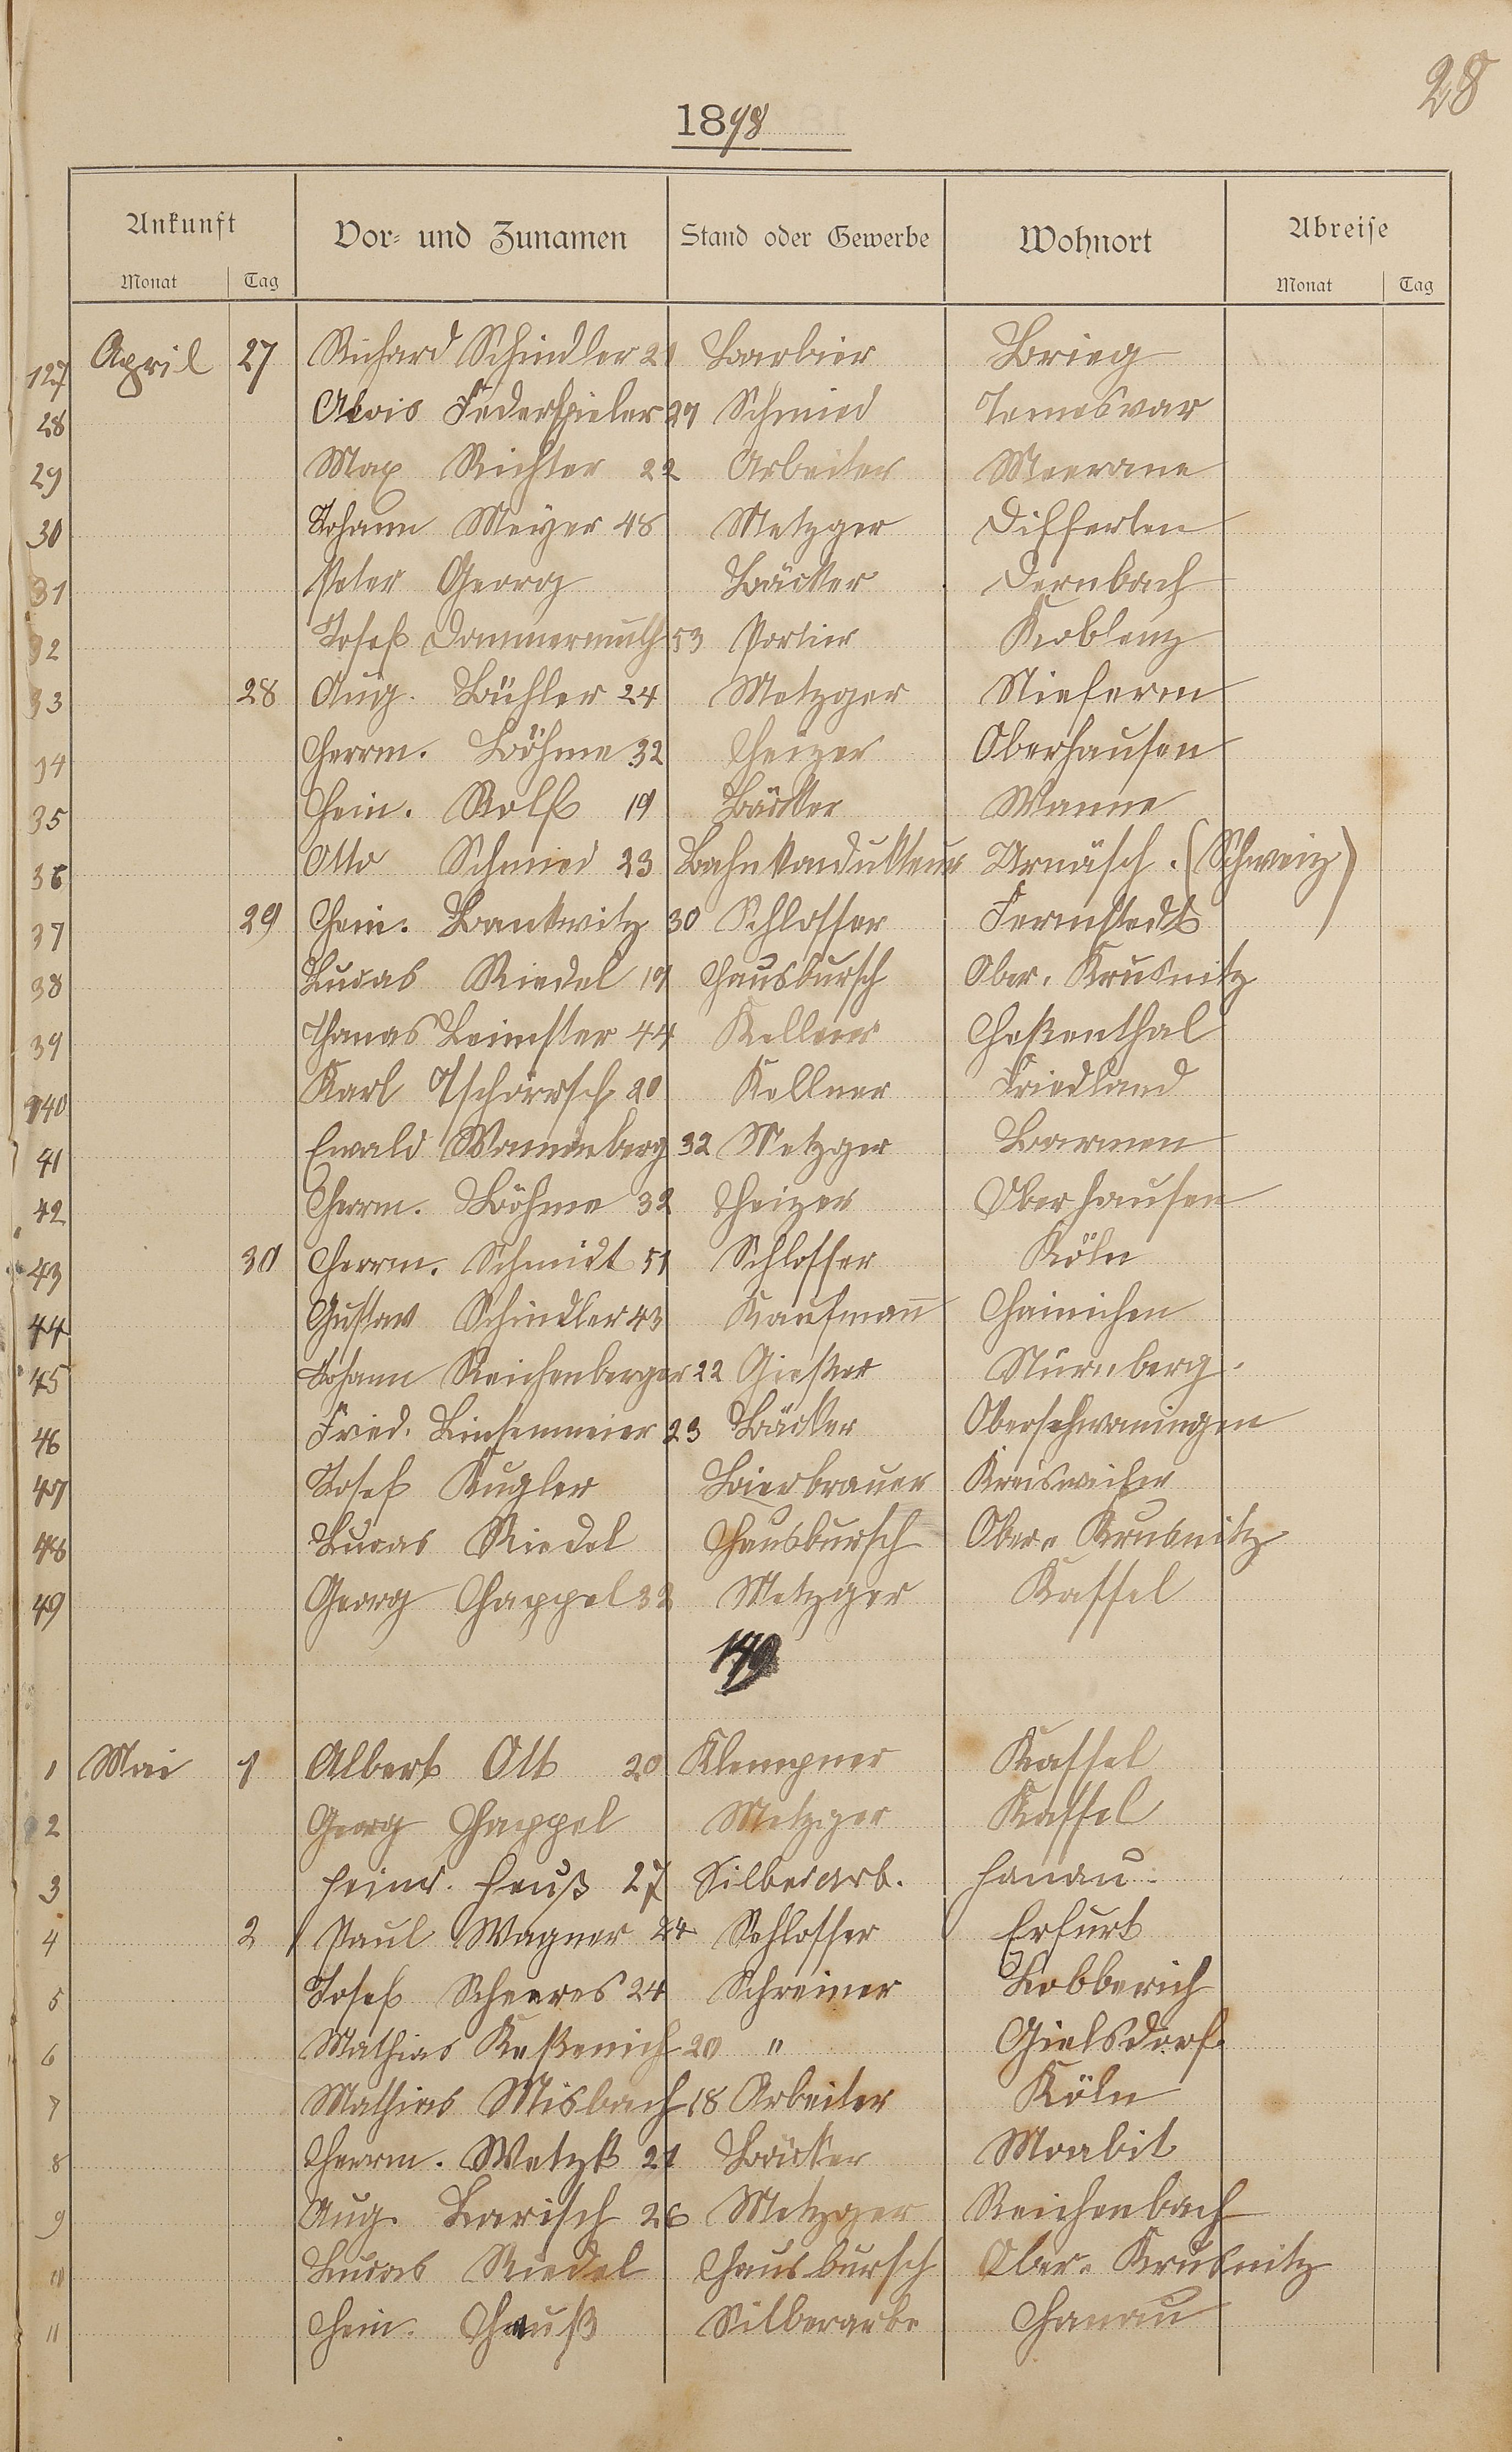 28
1898
Ankunft Vor- und Zunamen Stand oder Gewerbe Wohnort Abreise
Monat Tag Monat Tag
127 April 27 Richard Schindler 21 Barbier Brieg
28 Alois Federspieler 27 Schmied Temesvar
29 Max Richter 22 Arbeiter Meerane
30 Johann Meyer 48 Metzger Differten
31 Peter Georg Bäcker Dernbach
32 Josef Dommermuth 53 Portier Koblenz
33 28 Aug. Bühler 24 Metzger Niefern
34 Herrm. Böhme 32 Heizer Oberhausen
35 Hein. Rolf 19 Bäcker Wanne
36 Otto Schmied 23 Bahnkondukteur Urnäsch. (Schweiz)
37 29 Hein. Bankwitz 30 Schlosser Fermstedt
38 Lucas Riedel 19 Hausbursch Ober. Krusnitz
39 Thomas Leimster 44 Kellner Heßenthal
140 Karl Tschörrsch 20 Kellner Friedland
41 Ewald Wannenberg 32 Metzger Barmen
42 Herrm. Böhme 32 Heizer Oberhausen
43 30 Herrm. Schmidt 51 Schlosser Köln
44 Gustav Schindler 43 Kaufmann Hainichen
45 Johann Reichenberger 22 Gießer Nürnberg.
46 Fried. Linsenmeier 23 Bäcker Oberschwaningen
47 Josef Kugler Bierbrauer Kreisweiler
48 Lucas Riedel Hausbursch Ober. Krusnitz
49 Georg Happel 32 Metzger Kassel
149
1 Mai 1 Albert Ott 20 Klempner Kassel
2 Georg Happel Metzger Kassel
3 Heinr. Heuß 27 Silberarb. Hanau
4 2 Paul Wagner 24 Schlosser Erfurt
5 Josef Scheeres 24 Schreiner Lobberich
6 Mathias Keßenich 20 " Gielsdorf.
7 Mathias Misbach 18 Arbeiter Köln
8 Herrm. Wetzk 21 Bäcker Moabit
9 Aug. Barisch 26 Metzger Reichenbach
10 Lucas Riedel Hausbursch Ober. Krusnitz
11 Hein. Hauß Silberarbe Hanau